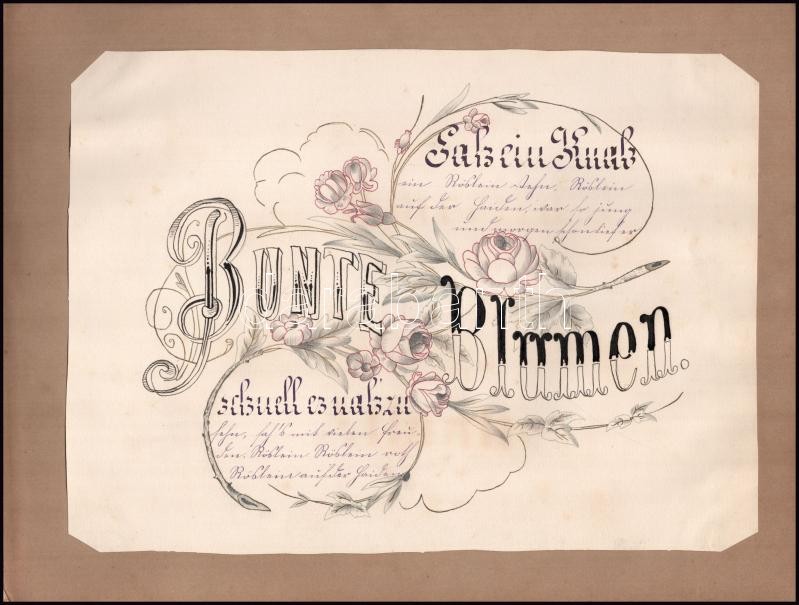 Sah ein Knab
ein Röslein stehn, Röslein
auf der Haiden, war so jung
und morgenschön lief er
BUNTE
Blumen.
schnell es nah zu
sehn, sah's mit vielen Freu-
den. Röslein Röslein roth
Röslein auf der Haiden
darabanth